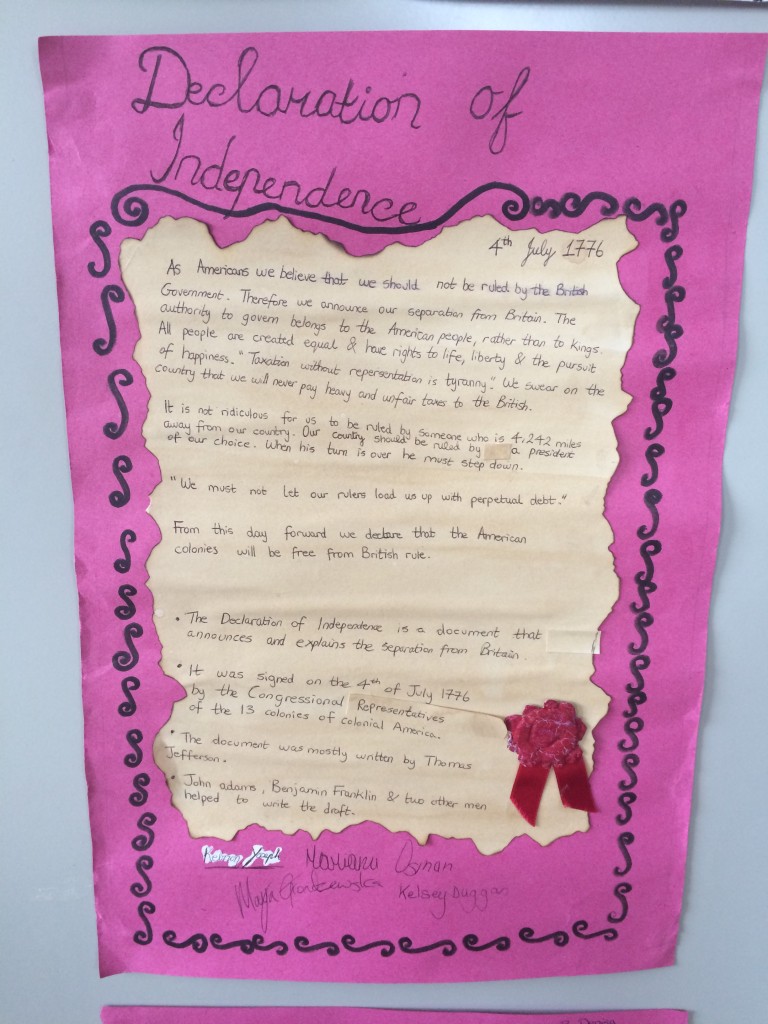 Declaration of
Independence
4th July 1776
As Americans we believe that we should not be ruled by the British
Government. Therefore we announce our separation from Britain. The
authority to govern belongs to the American people, rather than to kings.
All people are created equal & have rights to life, liberty & the pursuit
of happiness. "Taxation without repersentation is tyranny." We swear on the
country that we will never pay heavy and unfair taxes to the British.
It is not ridiculous for us to be ruled by someone who is 4,242 miles
away from our country. Our country should be ruled by a president
of our choice. When his turn is over he must step down.
"We must not let our rulers load us up with perpetual debt."
From this day forward we declare that the American
colonies will be free from British rule.
• The Declaration of Independence is a document that
announces and explains the separation from Britain.
• It was signed on the 4th of July 1776
by the Congressional Representatives
of the 13 colonies of colonial America.
• The document was mostly written by Thomas
Jefferson.
• John adams, Benjamin Franklin & two other men
helped to write the draft.
Osman
Maya Kelsey Duggan